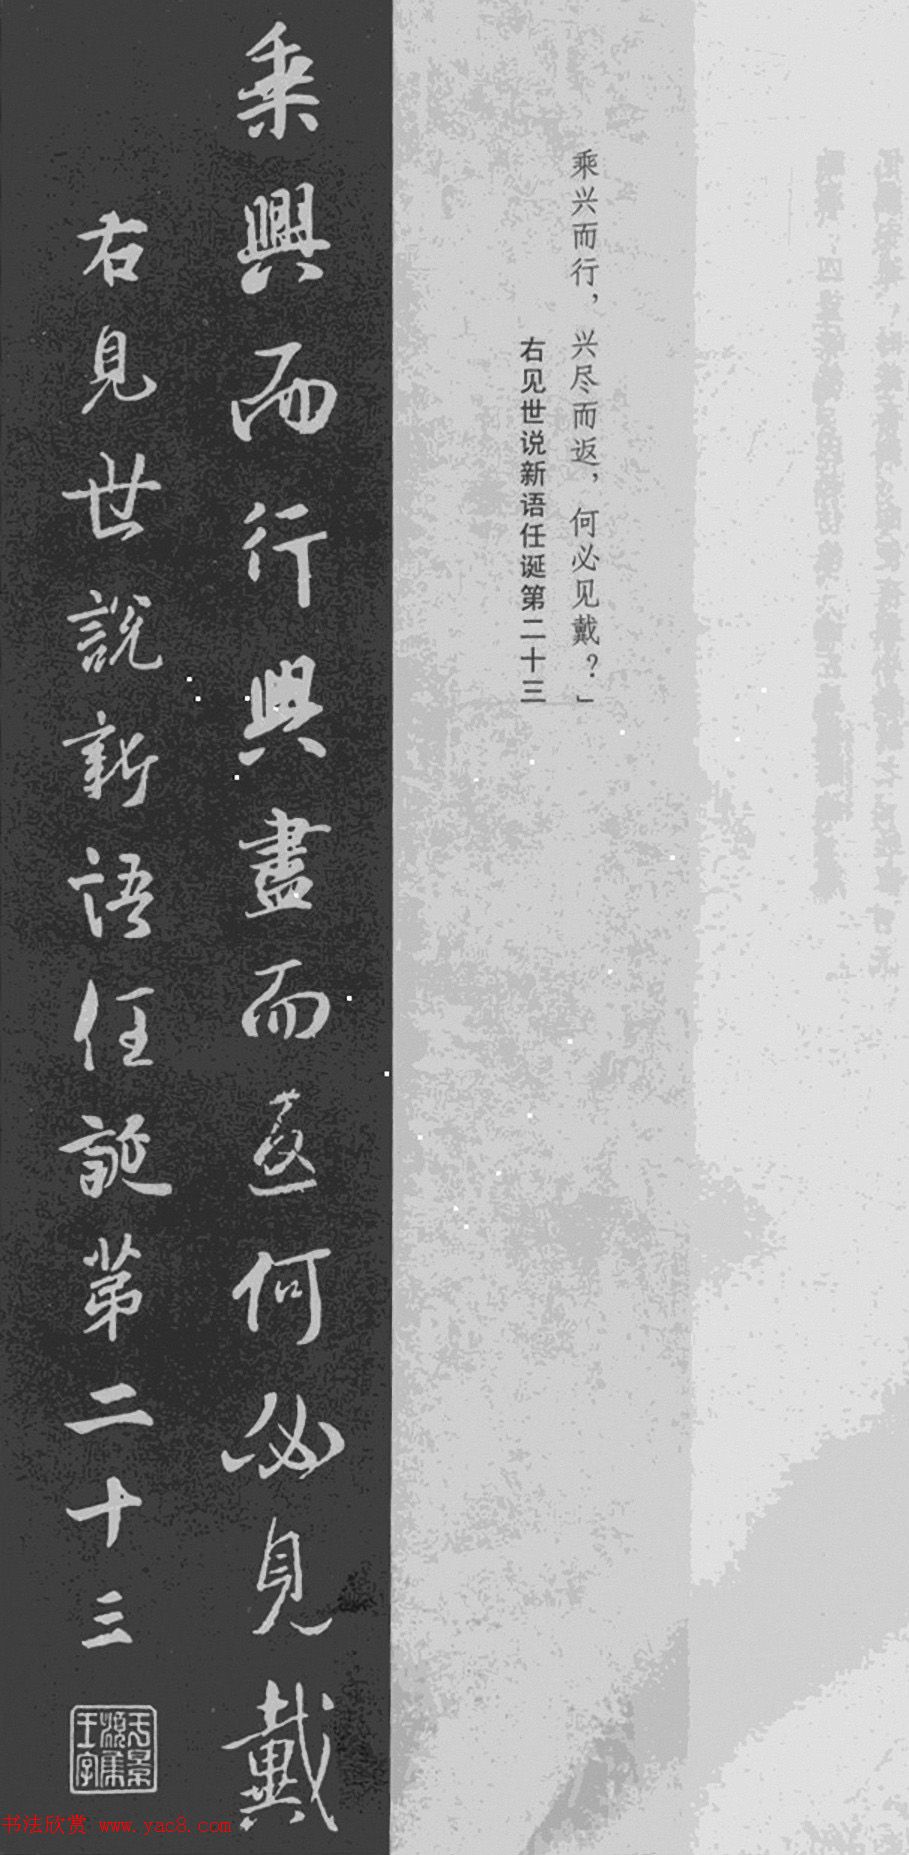 乘兴而行，兴尽而返，何必见戴？」
右见世说新语任诞第二十三
乘興而行興盡而返何必見戴
右見世說新語任誕第二十三
书法欣赏 www.yac8.com